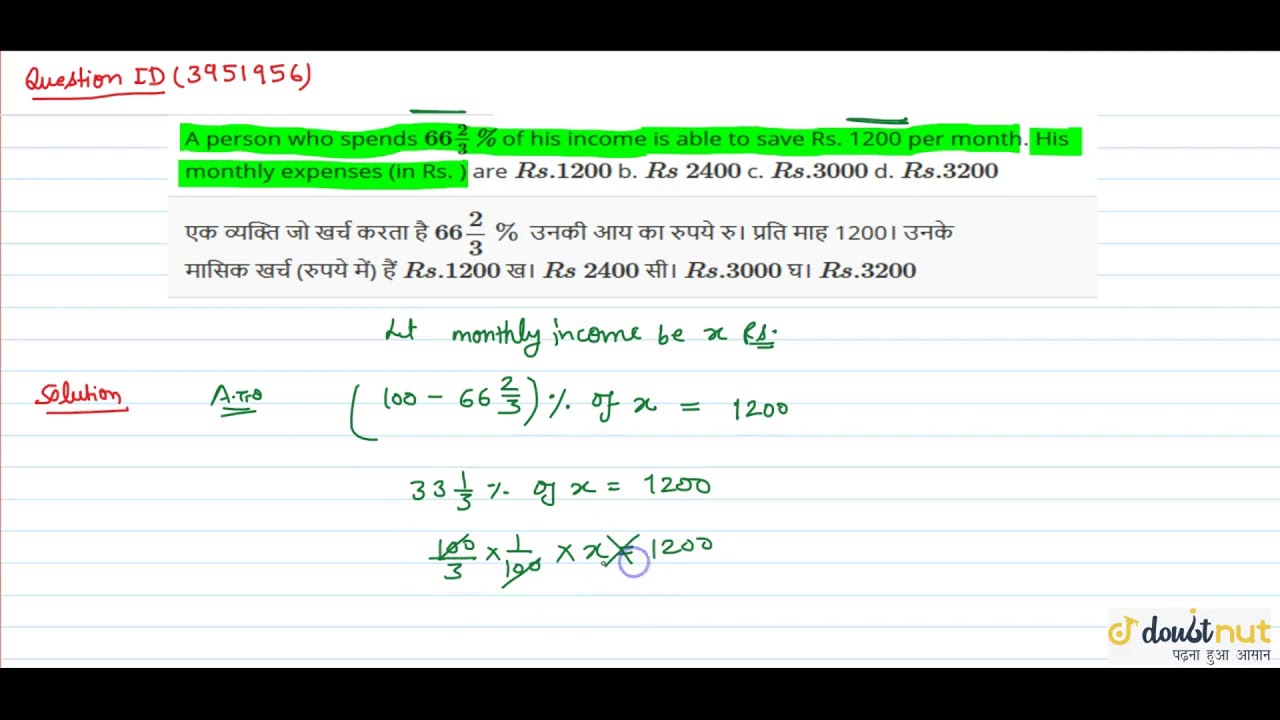 Question ID (3951956)
A person who spends 66 2/3 % of his income is able to save Rs. 1200 per month. His
monthly expenses (in Rs. ) are Rs.1200 b. Rs 2400 c. Rs.3000 d. Rs.3200
एक व्यक्ति जो खर्च करता है 66 2/3 % उनकी आय का रुपये रु। प्रति माह 1200। उनके
मासिक खर्च (रुपये में) हैं Rs.1200 ख। Rs 2400 सी। Rs.3000 घ। Rs.3200
Let monthly income be x Rs.
Solution A.T.Q (100 - 66 2/3) % of x = 1200
33 1/3 % of x = 1200
100/3 × 1/100 × x = 1200
doubtnut
पढ़ना हुआ आसान